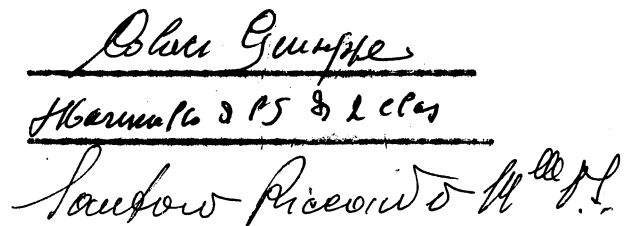 Colaci Giuseppe
Maresciallo di PS di 2 clas
Santoro Riccardo M.llo P.S.